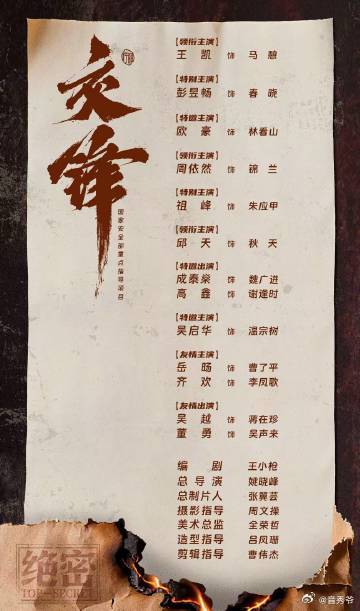 交锋
国家安全部重点指导项目
【领衔主演】
王凯 饰 马碧
【特别主演】
彭昱畅 饰 春晓
【特邀主演】
欧豪 饰 林看山
【领衔主演】
周依然 饰 锦兰
【特别主演】
祖峰 饰 朱应甲
【领衔主演】
邱天 饰 秋天
【特邀出演】
成泰燊 饰 魏广进
高鑫 饰 谢逢时
【特邀主演】
吴启华 饰 温宗树
【友情主演】
岳旸 饰 曹了平
齐欢 饰 李凤歌
【友情出演】
吴越 饰 蒋在珍
董勇 饰 吴声来
编剧 王小枪
总导演 姚晓峰
总制片人 张翼芸
摄影指导 周文操
美术总监 全荣哲
造型指导 吕凤珊
剪辑指导 曹伟杰
绝密
TOP-SECRET
@音秀爷